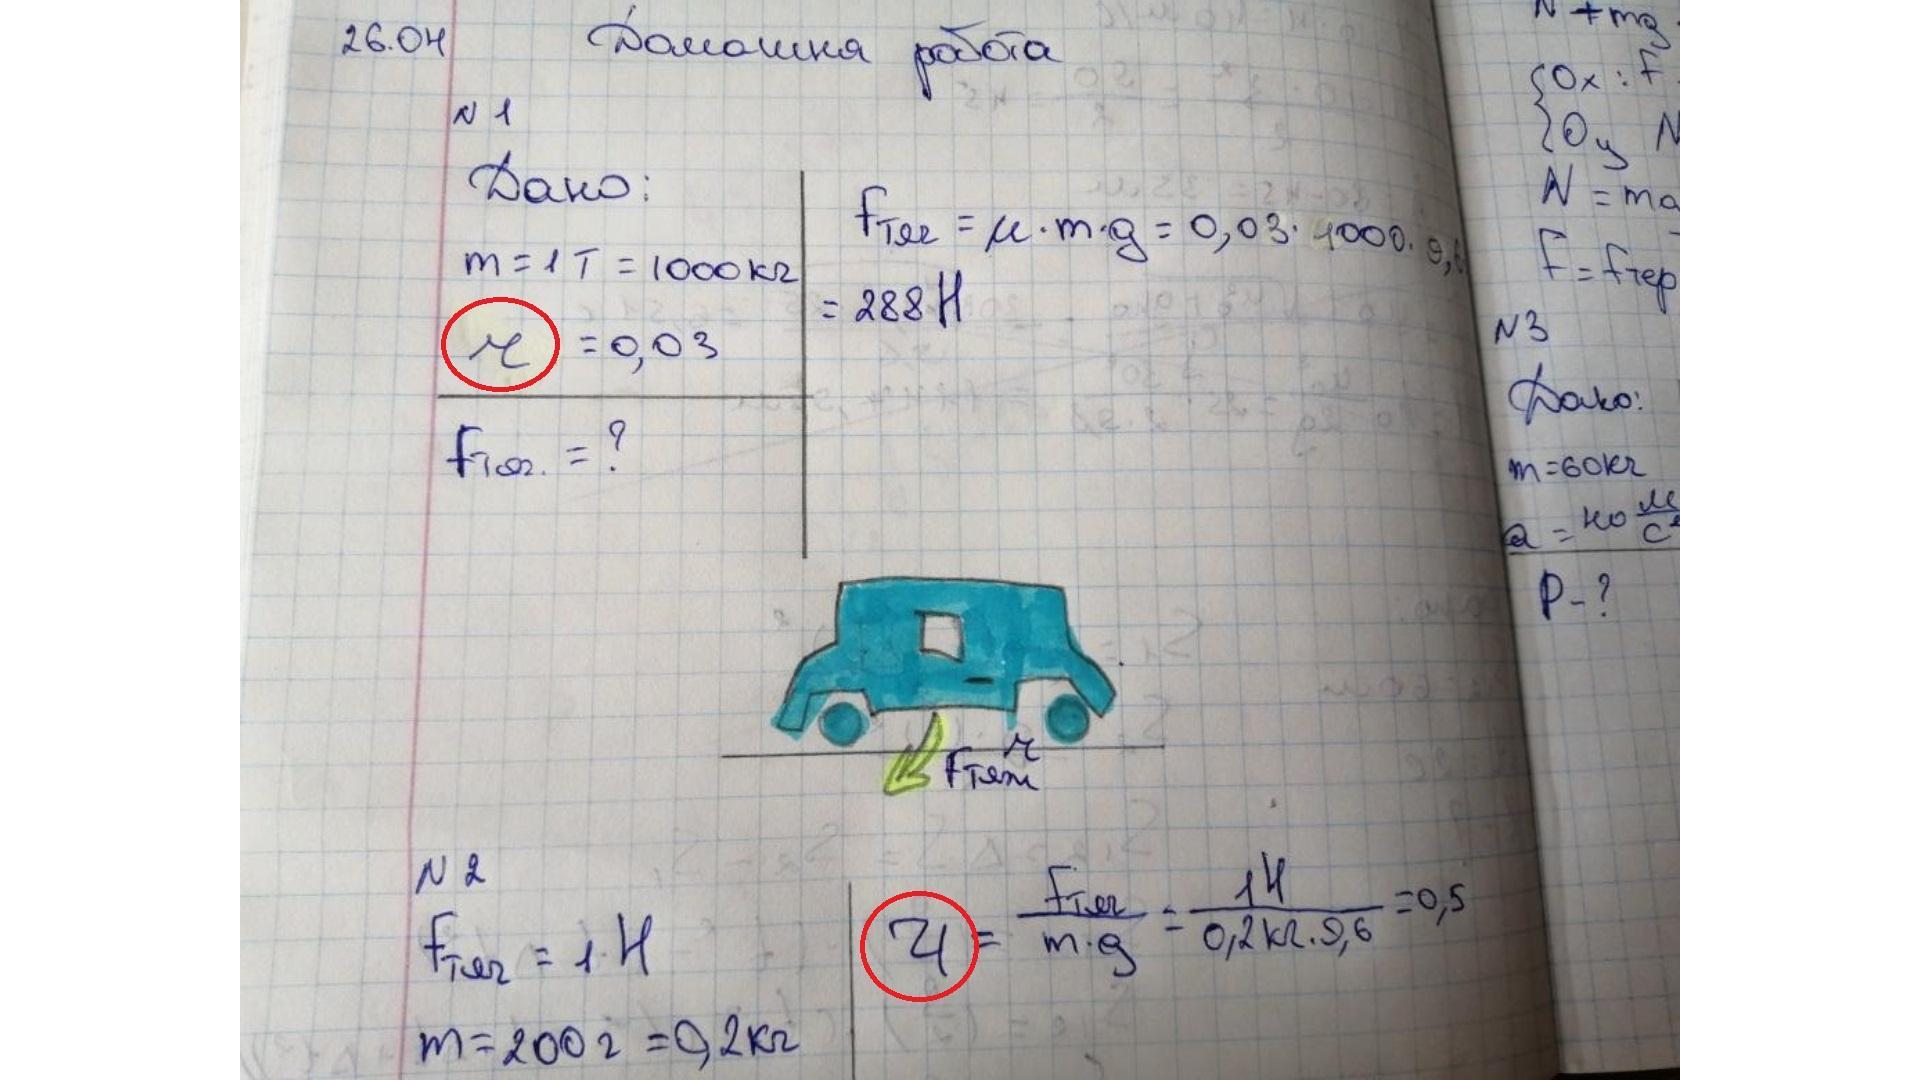 26.04 Домашня робота
N 1
Дано:
m = 1 T = 1000 кг
μ = 0,03
Fтяг. = ?
Fтяг = μ · m · g = 0,03 · 1000 · 9,6
= 288 H
μ
Fтяж
N 2
Fтяг = 1 H
m = 200 г = 0,2 кг
μ = Fтяг / m·g = 1H / 0,2 кг · 9,6 = 0,5
N + mg
Ox : F
Oy N
N = mg
F = Fтер
N3
Дано:
m = 60 кг
a = 40 м/с²
P - ?